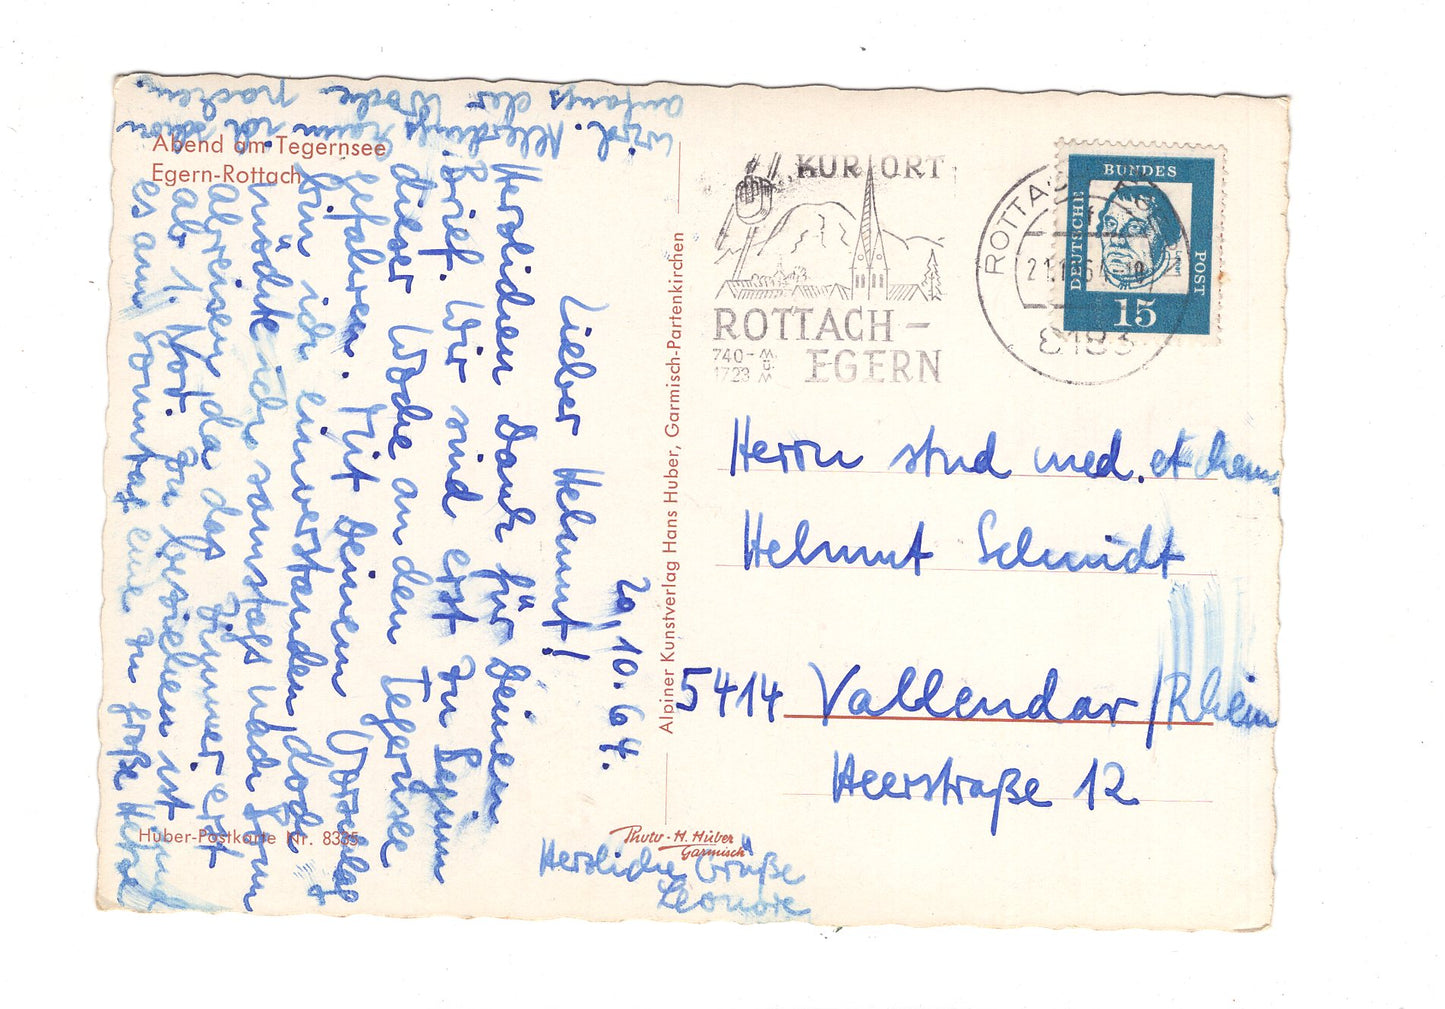 Abend am Tegernsee
Egern-Rottach
20.10.64.
Lieber Helmut!
Herzlichen Dank für Deinen
Brief. Wir sind erst zu Beginn
dieser Woche an den Tegernsee
gefahren. Mit Deinem Vorschlag
bin ich einverstanden, doch
möchte ich samstags nach Bonn
abreisen, da das Zimmer erst
ab 1. Nov. zu beziehen ist und
es am Sonntag eine zu große Hetze
wird. Allerdings kann ich schon
anfangs der Woche packen.
Herzliche Grüße
Leonore
Huber-Postkarte Nr. 8335
Photo-H. Huber
Garmisch
Alpiner Kunstverlag Hans Huber, Garmisch-Partenkirchen
KURORT
ROTTACH-
EGERN
740-
1723
m.
ü.
M
ROTTA
8183
DEUTSCHE
BUNDES
POST
15
Herrn stud med. et chem.
Helmut Schmidt
5414 Vallendar/Rhein
Heerstraße 12